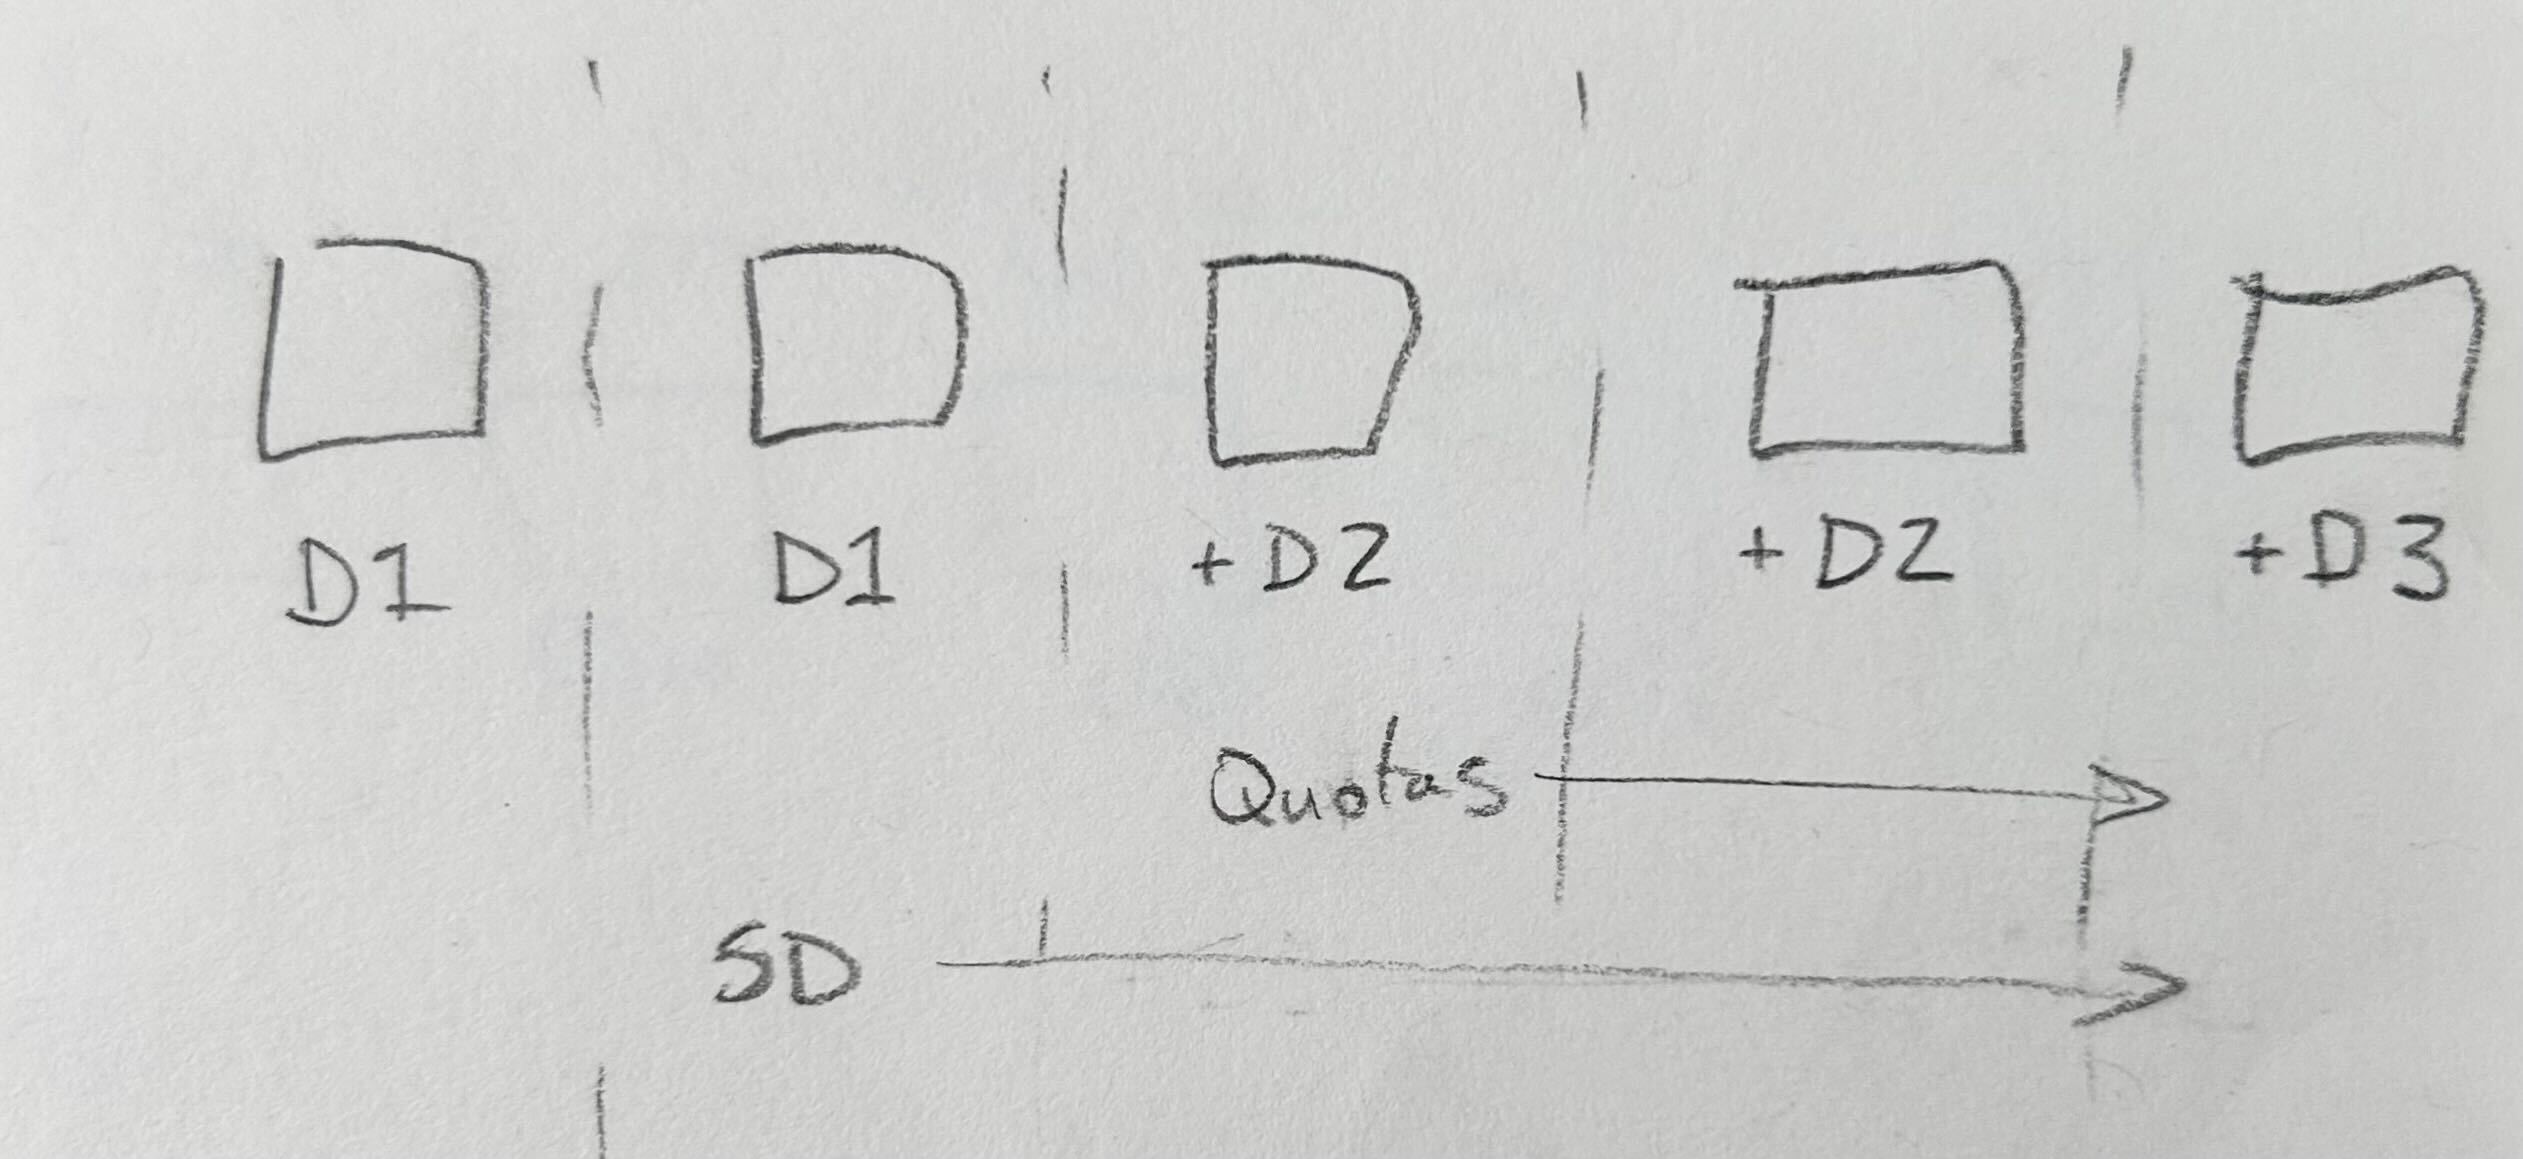 D1 D1 +D2 +D2 +D3
Quotas
SD